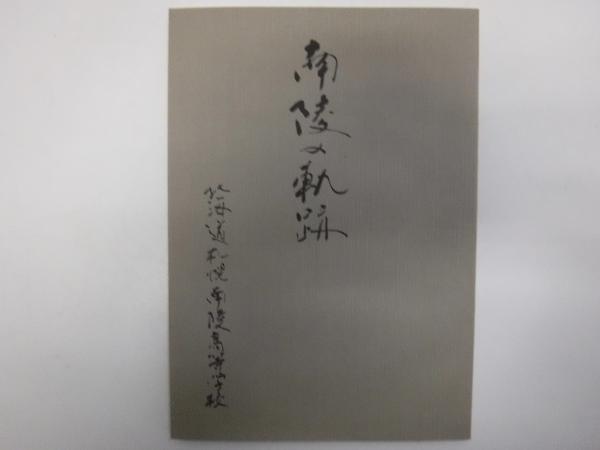 南陵の軌跡
北海道札幌南陵高等学校